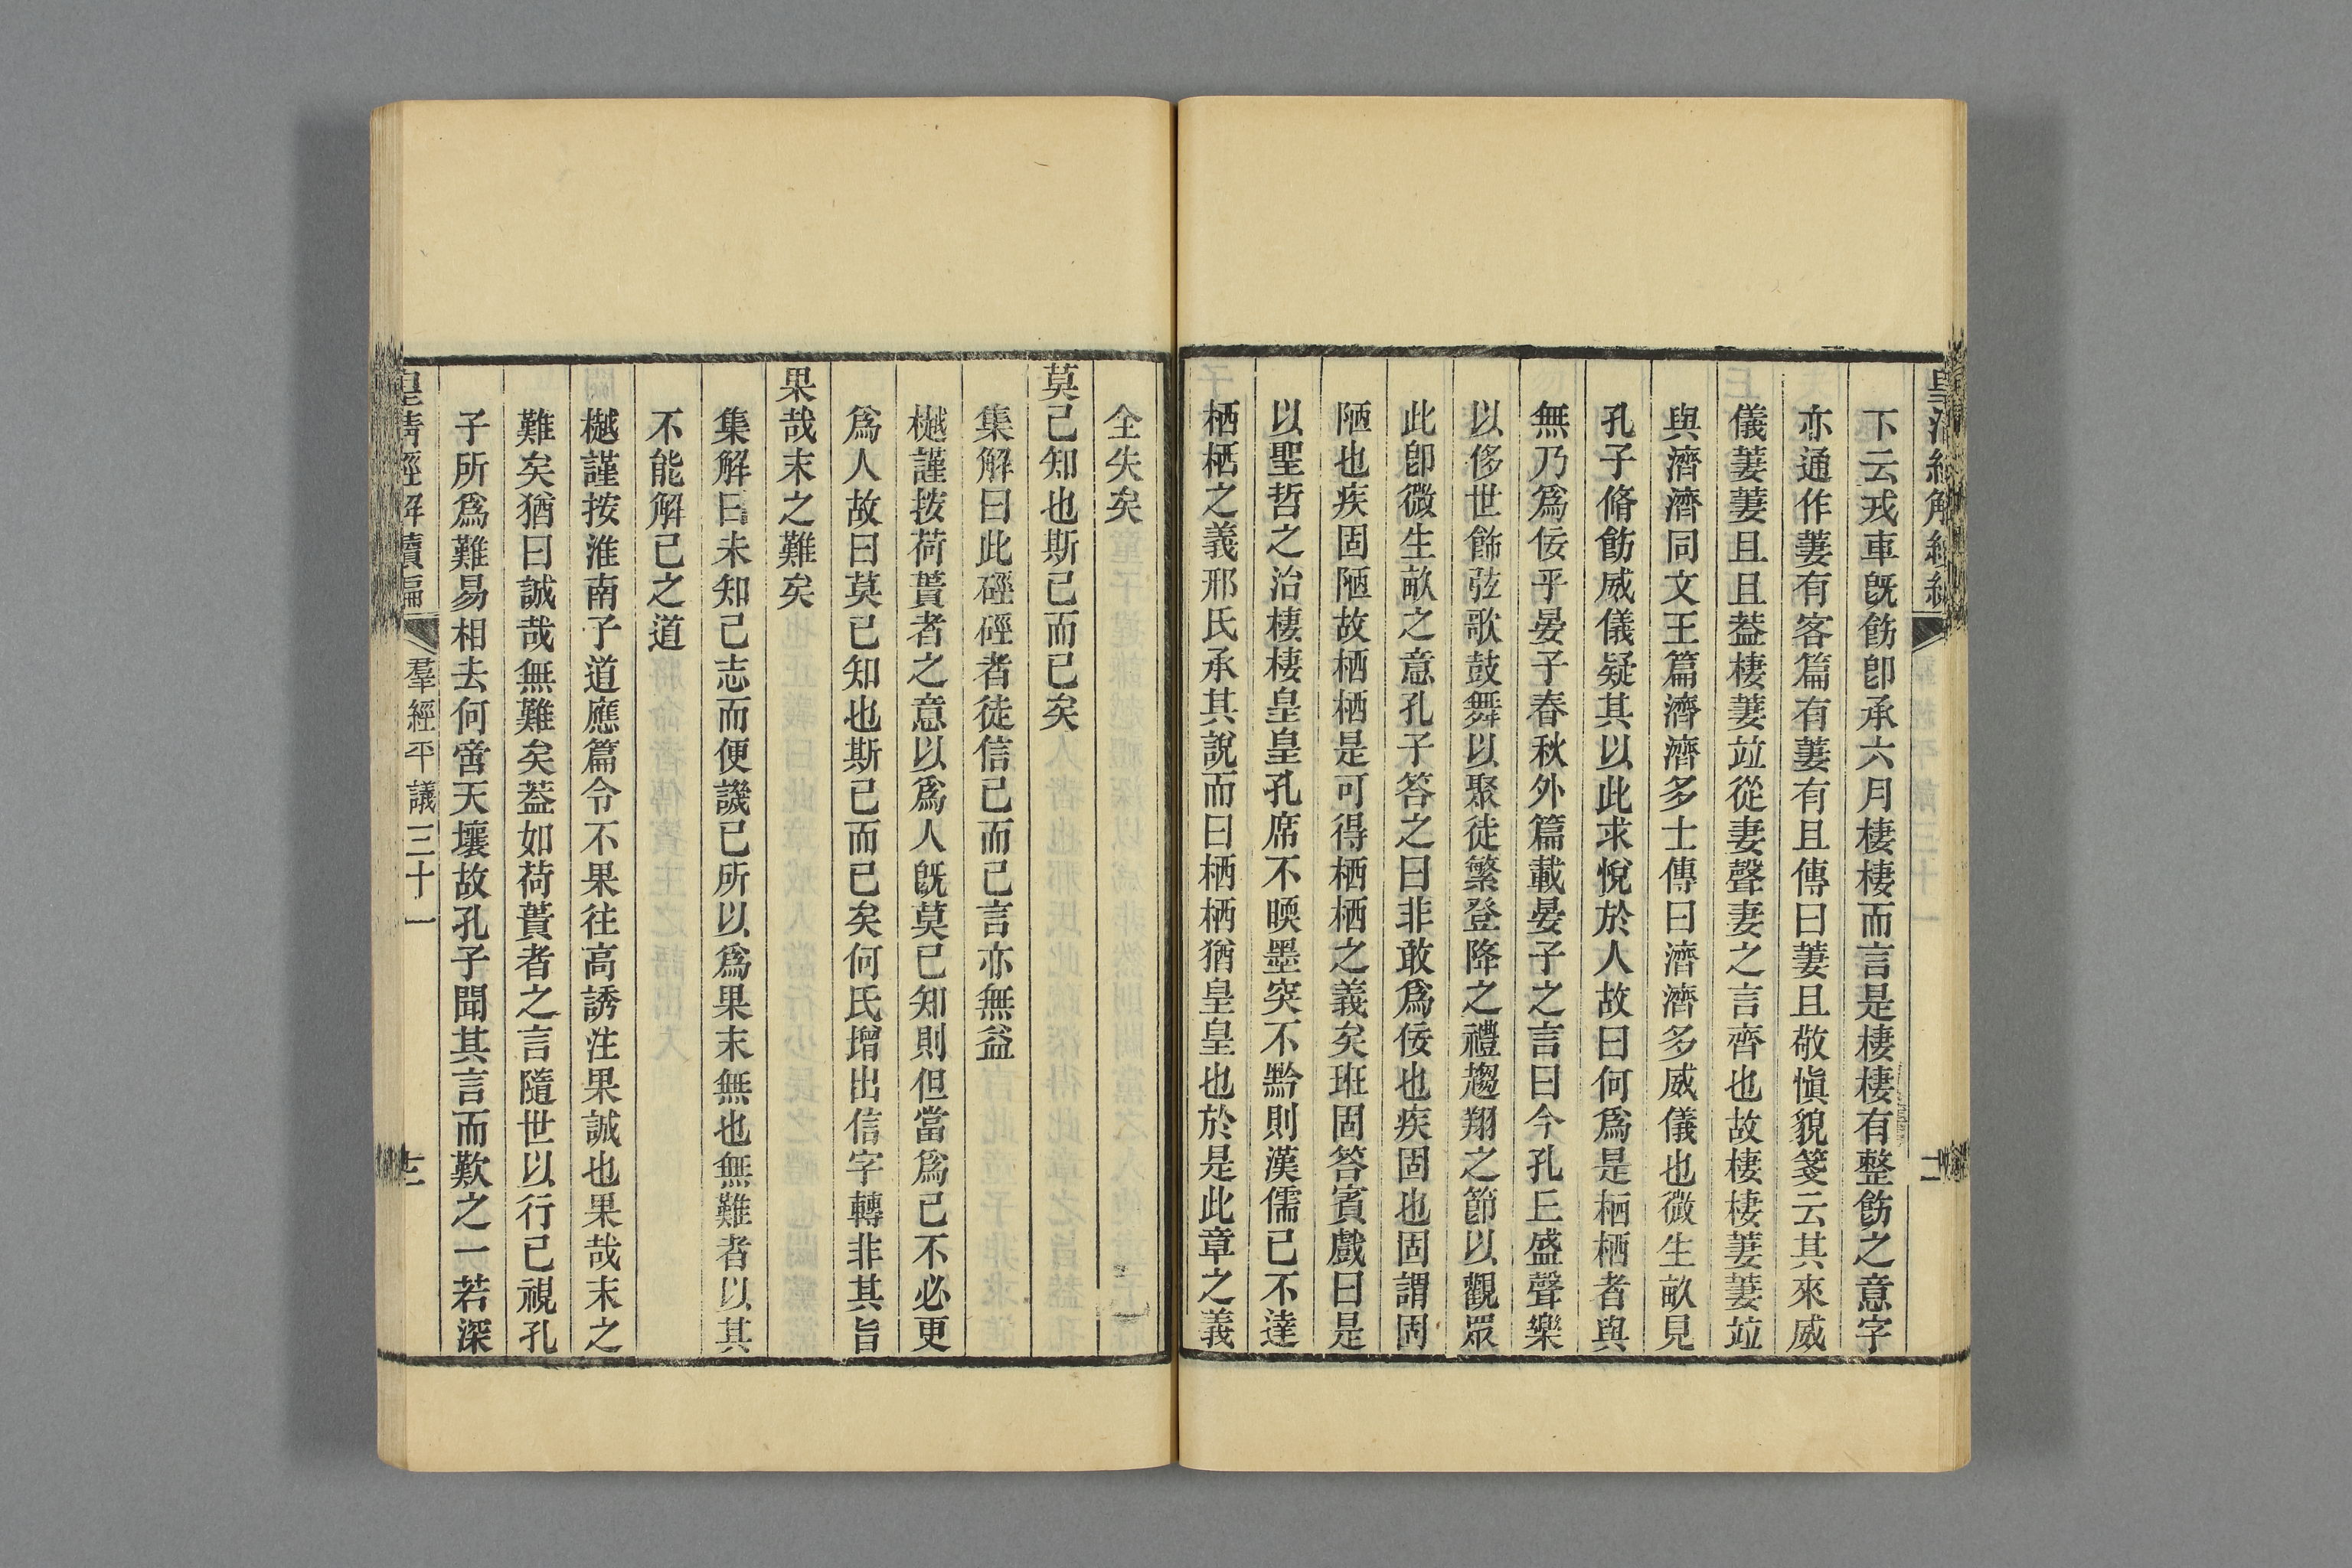 下云戎車旣飭卽承六月棲棲而言是棲棲有整飭之意字
亦通作萋有客篇有萋有且傳曰萋且敬愼貌箋云其來威
儀萋萋且且葢棲萋竝從妻聲妻之言齊也故棲棲萋萋竝
與濟濟同文王篇濟濟多士傳曰濟濟多威儀也微生畝見
孔子脩飭威儀疑其以此求悅於人故曰何爲是栖栖者與
無乃爲佞乎晏子春秋外篇載晏子之言曰今孔丘盛聲樂
以侈世飾弦歌鼓舞以聚徒繁登降之禮趨翔之節以觀眾
此卽微生畝之意孔子答之曰非敢爲佞也疾固也固謂固
陋也疾固陋故栖栖是可得栖栖之義矣班固答賓戲曰是
以聖哲之治棲棲皇皇孔席不暝墨突不黔則漢儒已不達
栖栖之義邢氏承其說而曰栖栖猶皇皇也於是此章之義
全失矣
莫己知也斯己而已矣
集解曰此硜硜者徒信己而已言亦無益
樾謹按荷蕢者之意以爲人旣莫己知則但當爲己不必更
爲人故曰莫己知也斯己而已矣何氏增出信字轉非其旨
果哉末之難矣
集解曰未知己志而便譏己所以爲果末無也無難者以其
不能解己之道
樾謹按淮南子道應篇令不果往高誘注果誠也果哉末之
難矣猶曰誠哉無難矣葢如荷蕢者之言隨世以行己視孔
子所爲難易相去何啻天壤故孔子聞其言而歎之一若深
皇清經解續編
羣經平議三十一